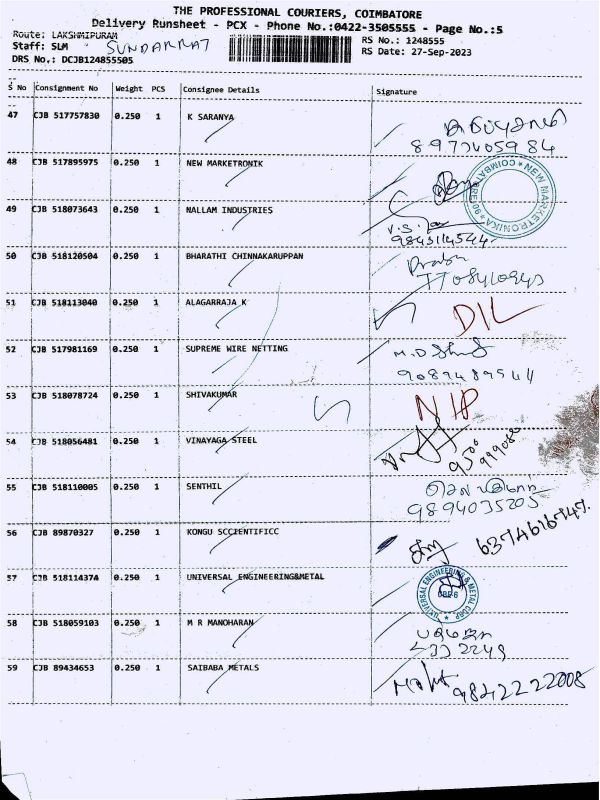 THE PROFESSIONAL COURIERS, COIMBATORE
Delivery Runsheet - PCX - Phone No.:0422-3505555 - Page No.:5
Route: LAKSHMIPURAM
RS No.: 1248555
Staff: SLM SUNDARRAJ
RS Date: 27-Sep-2023
DRS No.: DCJB124855505
S No Consignment No Weight PCS Consignee Details Signature
47 CJB 517757830 0.250 1 K SARANYA
8973405984
48 CJB 517895975 0.250 1 NEW MARKETRONIK
NEW MARKETRONIKA * COIMBATORE
49 CJB 518073643 0.250 1 NALLAM INDUSTRIES
50 CJB 518120504 0.250 1 BHARATHI CHINNAKARUPPAN
51 CJB 518113040 0.250 1 ALAGARRAJA K
D/L
52 CJB 517981169 0.250 1 SUPREME WIRE NETTING
53 CJB 518078724 0.250 1 SHIVAKUMAR
N/P
54 CJB 518056481 0.250 1 VINAYAGA STEEL
55 CJB 518110005 0.250 1 SENTHIL
9894035205
56 CJB 89870327 0.250 1 KONGU SCCIENTIFICC
57 CJB 518114374 0.250 1 UNIVERSAL ENGINEERING&METAL
UNIVERSAL ENGINEERING & METAL CORP
58 CJB 518059103 0.250 1 M R MANOHARAN
59 CJB 89434653 0.250 1 SAIBABA METALS
9842222008